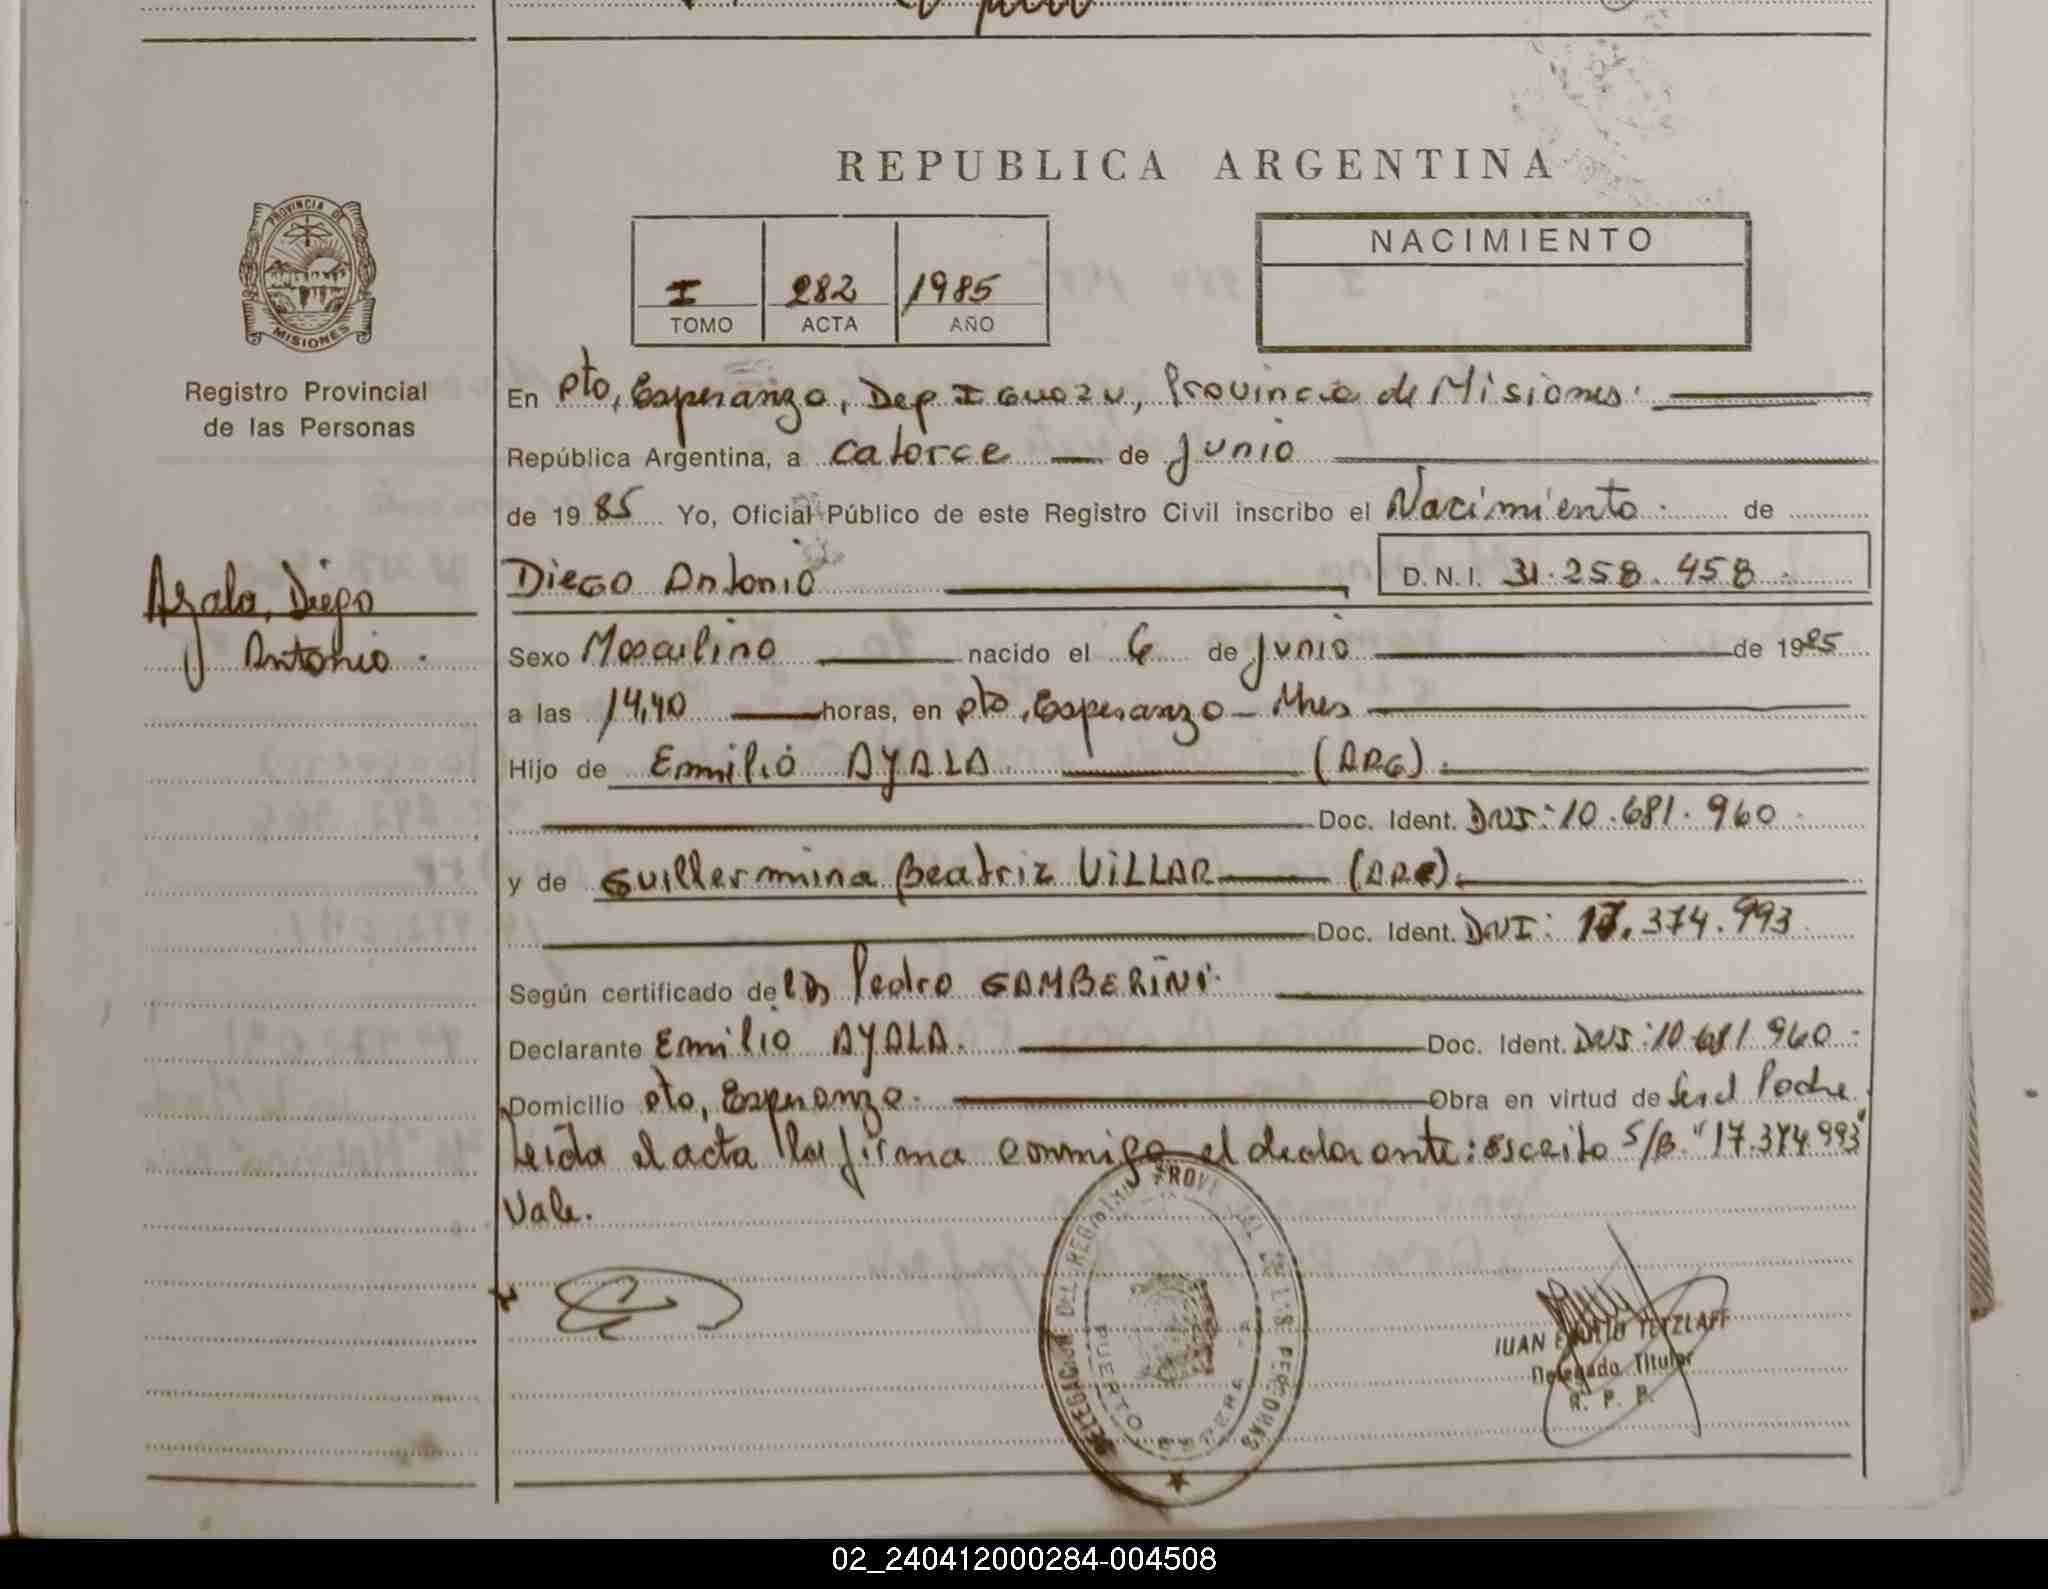 REPUBLICA ARGENTINA
PROVINCIA DE
MISIONES
Registro Provincial
de las Personas
I 282 1985
TOMO ACTA AÑO
NACIMIENTO
En Pto, Esperanza, Dep IGuazu, Provincia de Misiones.
República Argentina, a catorce de junio
de 1985 Yo, Oficial Público de este Registro Civil inscribo el Nacimiento de
Ayala, Diego
Antonio
Diego Antonio D.N.I. 31.258.458
Sexo Masculino nacido el 6 de junio de 1985
a las 14,40 horas, en Pto, Esperanza - Mnes
Hijo de Emilio AYALA (ARG).
Doc. Ident. DNI: 10.681.960
y de Guillermina Beatriz VILLAR (ARG).
Doc. Ident. DNI: 17.374.993
Según certificado de Pedro GAMBERINI.
Declarante Emilio AYALA. Doc. Ident. DNI: 10.681.960
Domicilio Pto, Esperanza. Obra en virtud de Ser el Padre.
Leida el acta la firma conmigo el declarante: escrito S/B. "17.374.993"
Vale.
DELEGACION DEL REGISTRO PROVINCIAL DE LAS PERSONAS
PUERTO
JUAN EMILIO TETZLAFF
Delegado Titular
R. P. P.
02_240412000284-004508